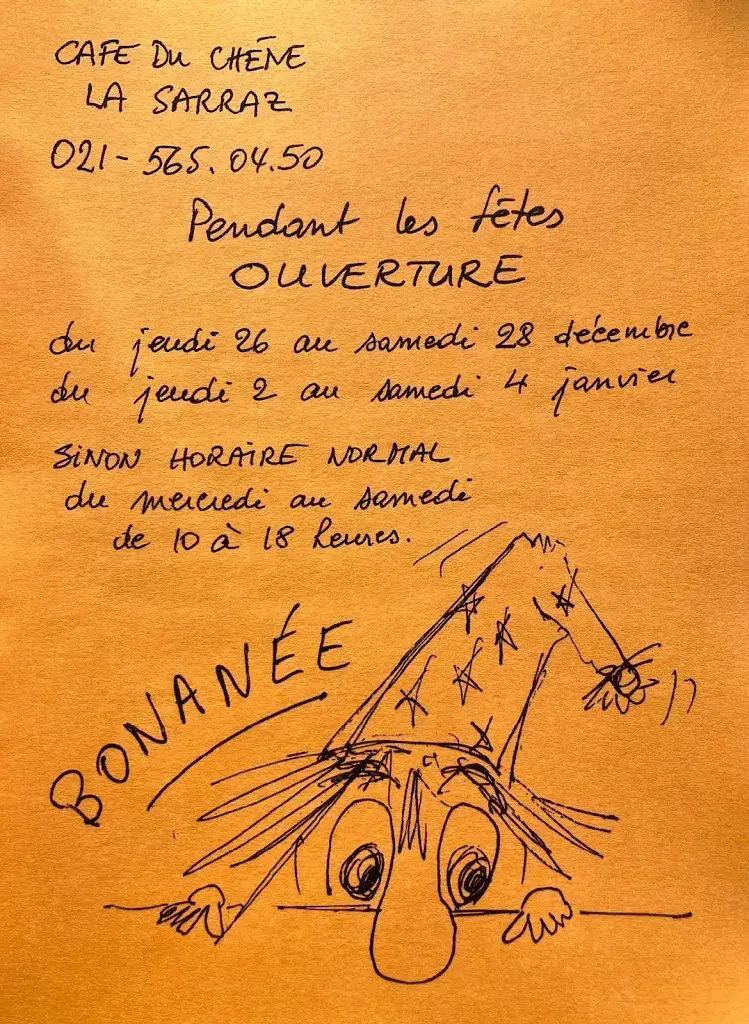 CAFE DU CHÊNE
LA SARRAZ
021-565.04.50
Pendant les fêtes
OUVERTURE
du jeudi 26 au samedi 28 décembre
du jeudi 2 au samedi 4 janvier
SINON HORAIRE NORMAL
du mercredi au samedi
de 10 à 18 heures.
BONANÉE